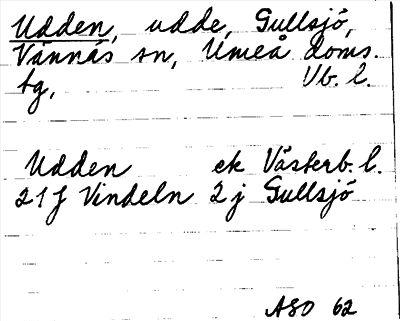 Udden, udde, Gullsjö,
Vännäs sn, Umeå doms.
tg, Vb. l.
Udden ek Västerb. l.
21 J Vindeln 2 j Gullsjö
ASO 62